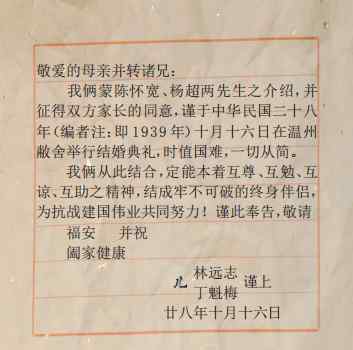 敬爱的母亲并转诸兄：
我俩蒙陈怀宽、杨超两先生之介绍，并
征得双方家长的同意，谨于中华民国二十八
年（编者注：即1939年）十月十六日在温州
敝舍举行结婚典礼，时值国难，一切从简。
我俩从此结合，定能本着互尊、互勉、互
谅、互助之精神，结成牢不可破的终身伴侣，
为抗战建国伟业共同努力！谨此奉告，敬请
福安 并祝
阖家健康
儿 林远志 谨上
丁魁梅
廿八年十月十六日